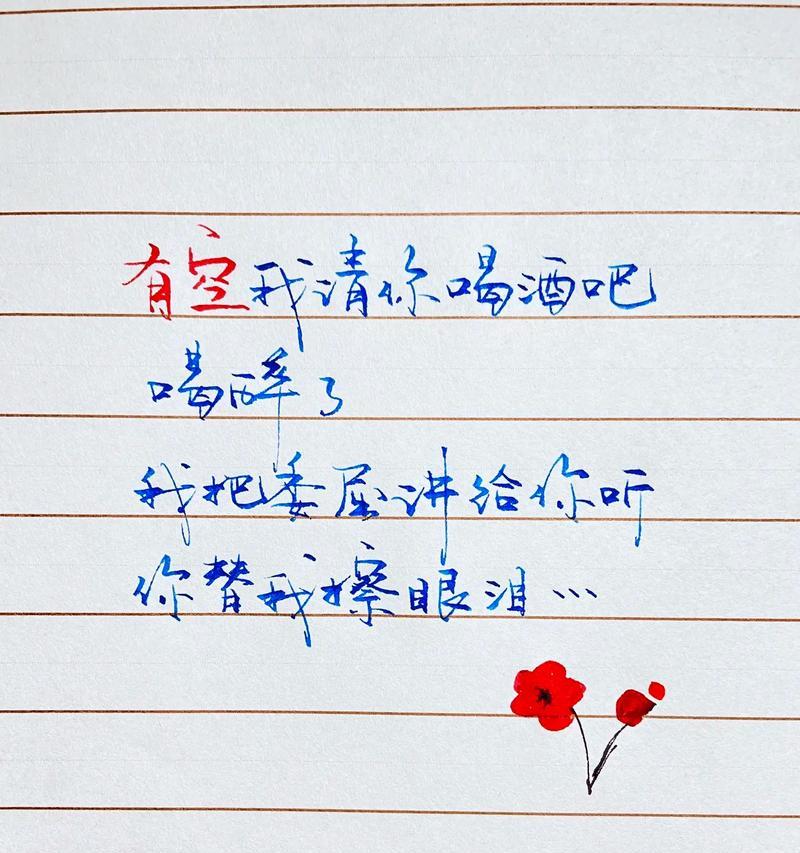 有空我请你喝酒吧
喝醉了
我把委屈讲给你听
你替我擦眼泪…